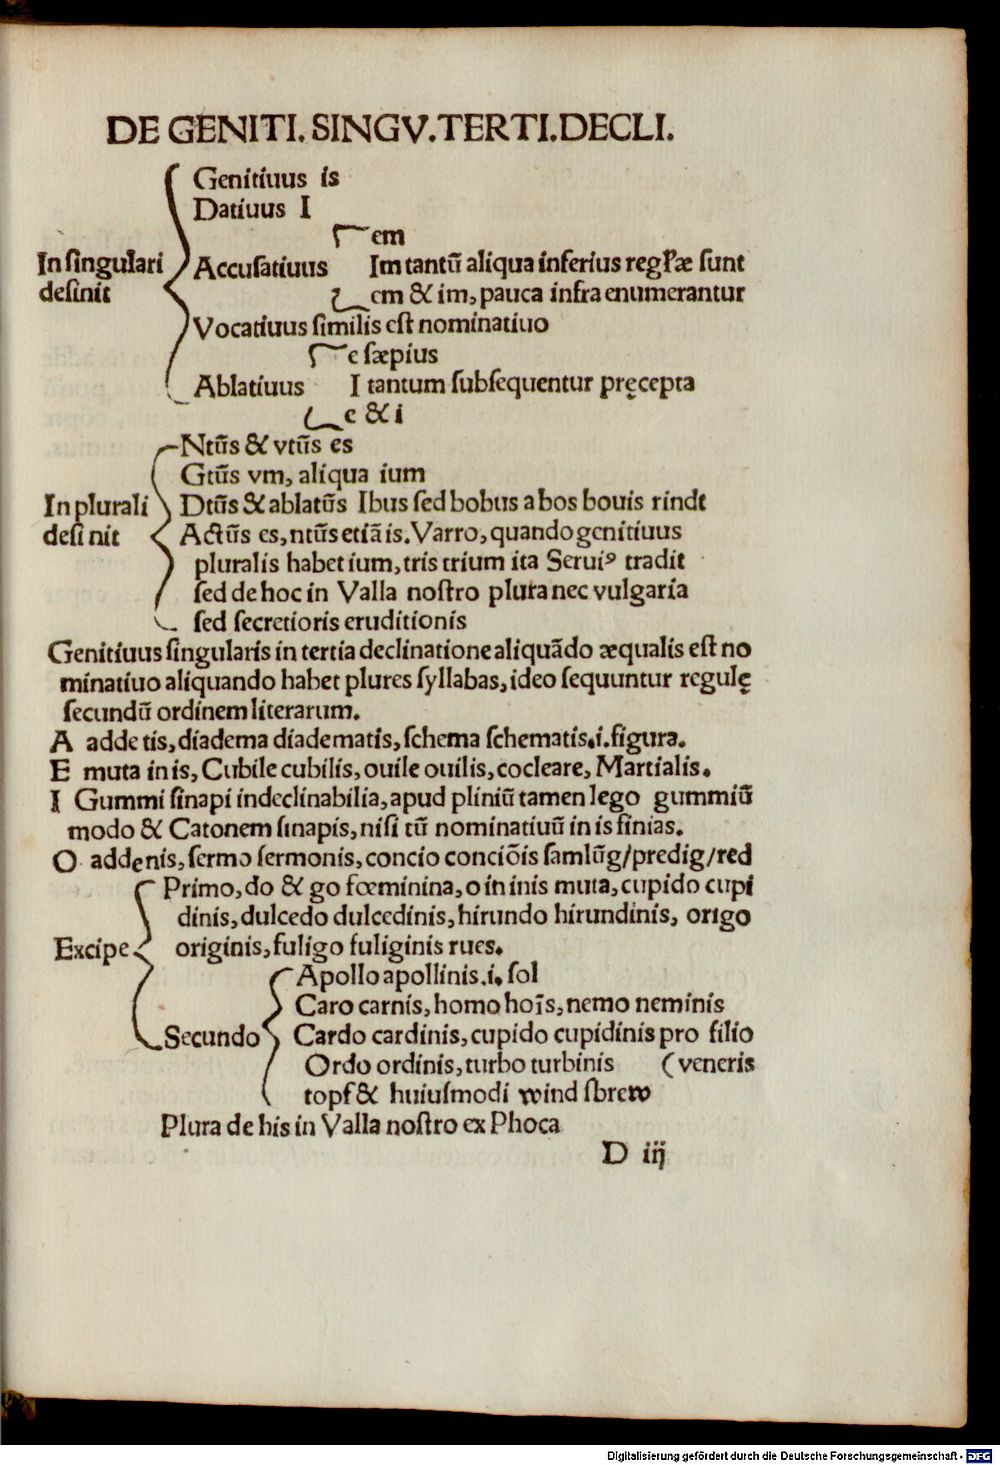 DE GENITI. SINGV. TERTI. DECLI.
Genitiuus is
Datiuus I
em
In singulari Accusatiuus Im tantū aliqua inferius reglæ sunt
desinit em & im, pauca infra enumerantur
Vocatiuus similis est nominatiuo
e sæpius
Ablatiuus I tantum subsequentur pręcepta
e & i
Ntūs & vtūs es
Gtūs vm, aliqua ium
In plurali Dtūs & ablatūs Ibus sed bobus a bos bouis rindt
desi nit Actūs es, ntūs etiā is. Varro, quando genitiuus
pluralis habet ium, tris trium ita Seruiꝰ tradit
sed de hoc in Valla nostro plura nec vulgaria
sed secretioris eruditionis
Genitiuus singularis in tertia declinatione aliquādo æqualis est no
minatiuo aliquando habet plures syllabas, ideo sequuntur regulę
secundū ordinem literarum.
A adde tis, diadema diadematis, schema schematis.i.figura.
E muta in is, Cubile cubilis, ouile ouilis, cocleare, Martialis.
I Gummi sinapi indeclinabilia, apud pliniū tamen lego gummiū
modo & Catonem sinapis, nisi tū nominatiuū in is finias.
O adde nis, sermo sermonis, concio conciōis samlūg/predig/red
Primo, do & go fœminina, o in inis muta, cupido cupi
dinis, dulcedo dulcedinis, hirundo hirundinis, origo
Excipe originis, fuligo fuliginis rues.
Apollo apollinis.i. sol
Caro carnis, homo hoīs, nemo neminis
Secundo Cardo cardinis, cupido cupidinis pro filio
Ordo ordinis, turbo turbinis (veneris
topf & huiusmodi wind sbrew
Plura de his in Valla nostro ex Phoca
D iij
Digitalisierung gefördert durch die Deutsche Forschungsgemeinschaft - DFG